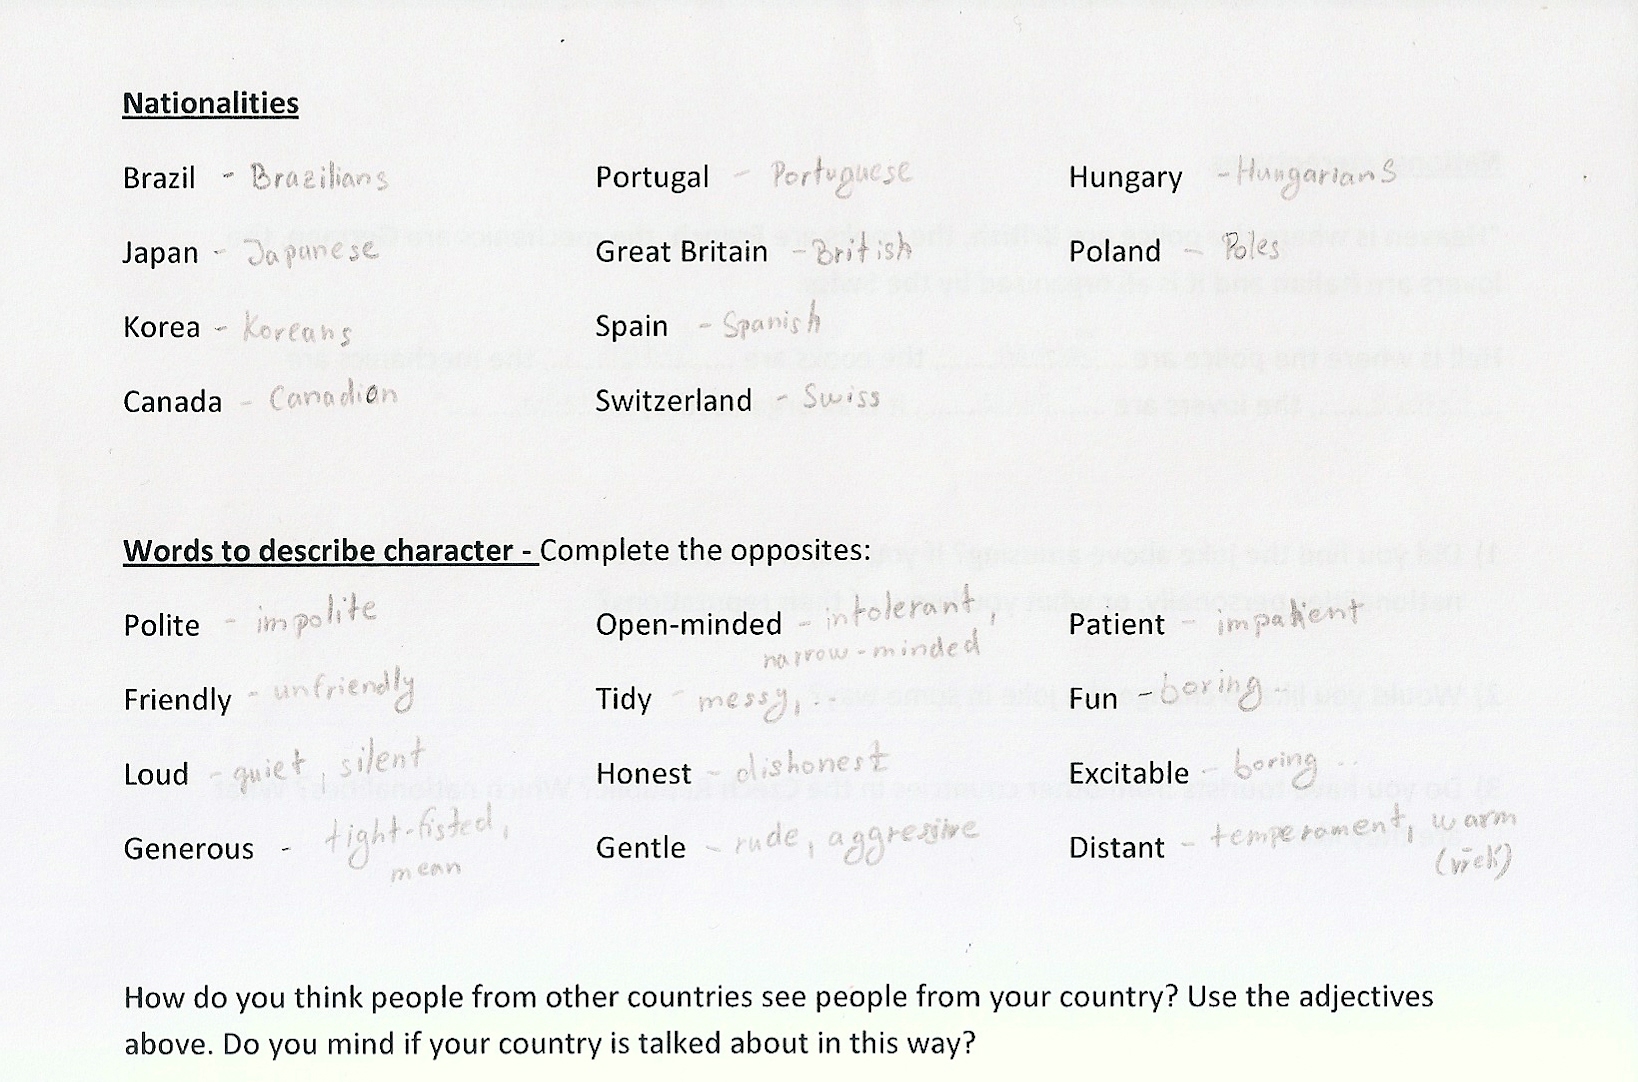 Nationalities
Brazil - Brazilians Portugal - Portuguese Hungary - Hungarians
Japan - Japanese Great Britain - British Poland - Poles
Korea - Koreans Spain - Spanish
Canada - Canadian Switzerland - Swiss
Words to describe character - Complete the opposites:
Polite - impolite Open-minded - intolerant, Patient - impatient
narrow-minded
Friendly - unfriendly Tidy - messy, .. Fun - boring ..
Loud - quiet, silent Honest - dishonest Excitable - boring ..
Generous - tight-fisted, Gentle - rude, aggresive Distant - temperament, warm
mean
How do you think people from other countries see people from your country? Use the adjectives
above. Do you mind if your country is talked about in this way?